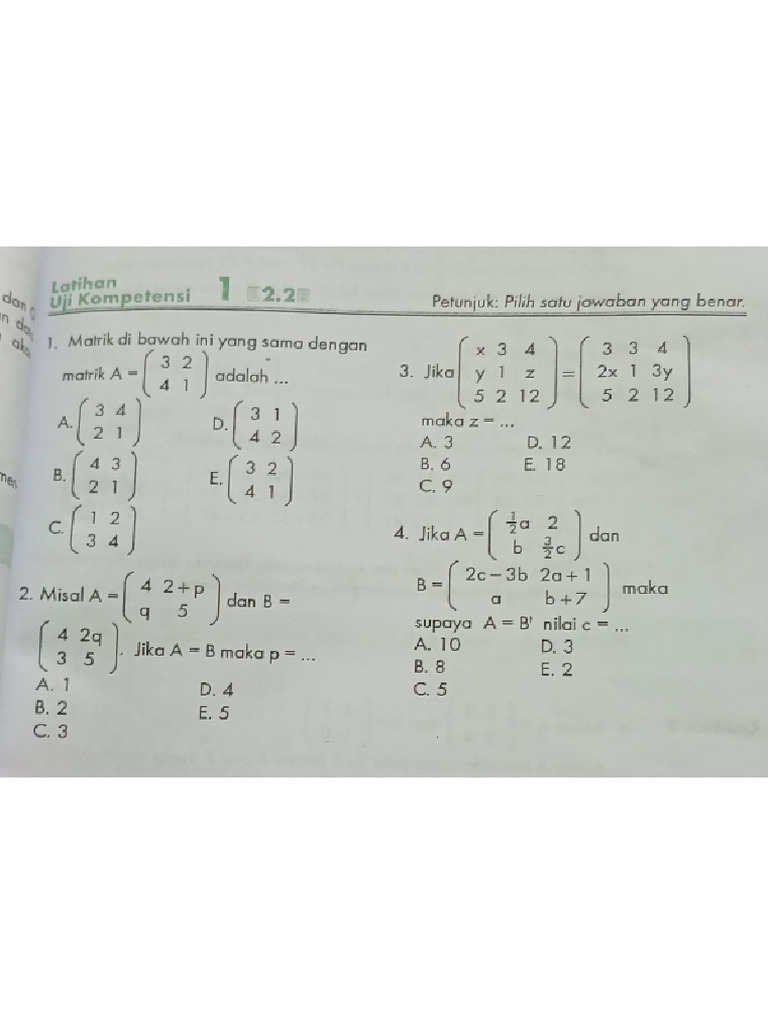 Latihan
Uji Kompetensi 1 2.2
Petunjuk: Pilih satu jawaban yang benar.
1. Matrik di bawah ini yang sama dengan
matrik A = (3 2
4 1) adalah ...
A. (3 4
2 1)
B. (4 3
2 1)
C. (1 2
3 4)
D. (3 1
4 2)
E. (3 2
4 1)
2. Misal A = (4 2+p
q 5) dan B =
(4 2q
3 5). Jika A = B maka p = ...
A. 1
B. 2
C. 3
D. 4
E. 5
3. Jika (x 3 4
y 1 z
5 2 12) = (3 3 4
2x 1 3y
5 2 12)
maka z = ...
A. 3
B. 6
C. 9
D. 12
E. 18
4. Jika A = (½a 2
b 3/2c) dan
B = (2c – 3b 2a + 1
a b + 7) maka
supaya A = B' nilai c = ...
A. 10
B. 8
C. 5
D. 3
E. 2
dan